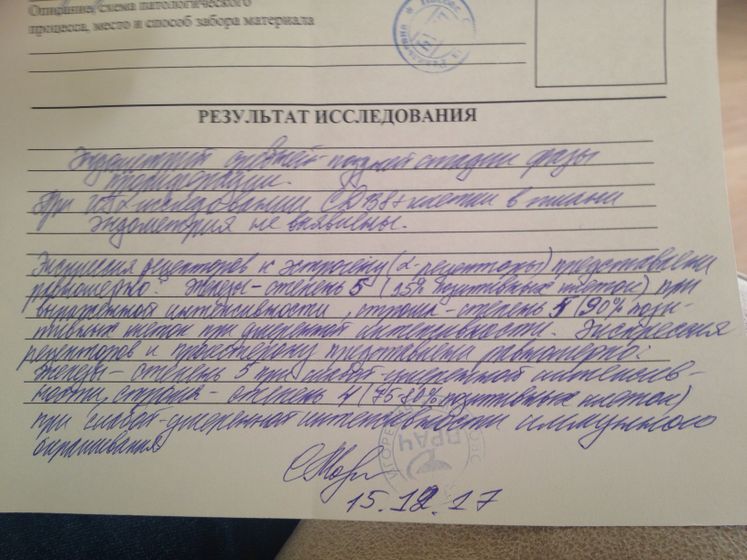 Описание, схема патологического
процесса, место и способ забора материала
РЕЗУЛЬТАТ ИССЛЕДОВАНИЯ
Эндометрий средней-поздней стадии фазы
пролиферации.
При исследовании CD138+ клетки в ткани
эндометрия не выявлены.
Экспрессия рецепторов к эстрогену (α-рецепторы) представлена
равномерно: железы-степень 5 (95% позитивных клеток) при
выраженной интенсивности, строма-степень (90% пози-
тивных клеток при умеренной интенсивности. Экспрессия
рецепторов к прогестерону представлена равномерно:
железы - степень 5 при слабой-умеренной интенсив-
ности, строма - степень 4 (75-80% позитивных клеток)
при слабой-умеренной интенсивности иммунного
окрашивания
ВРАЧ
15.12.17